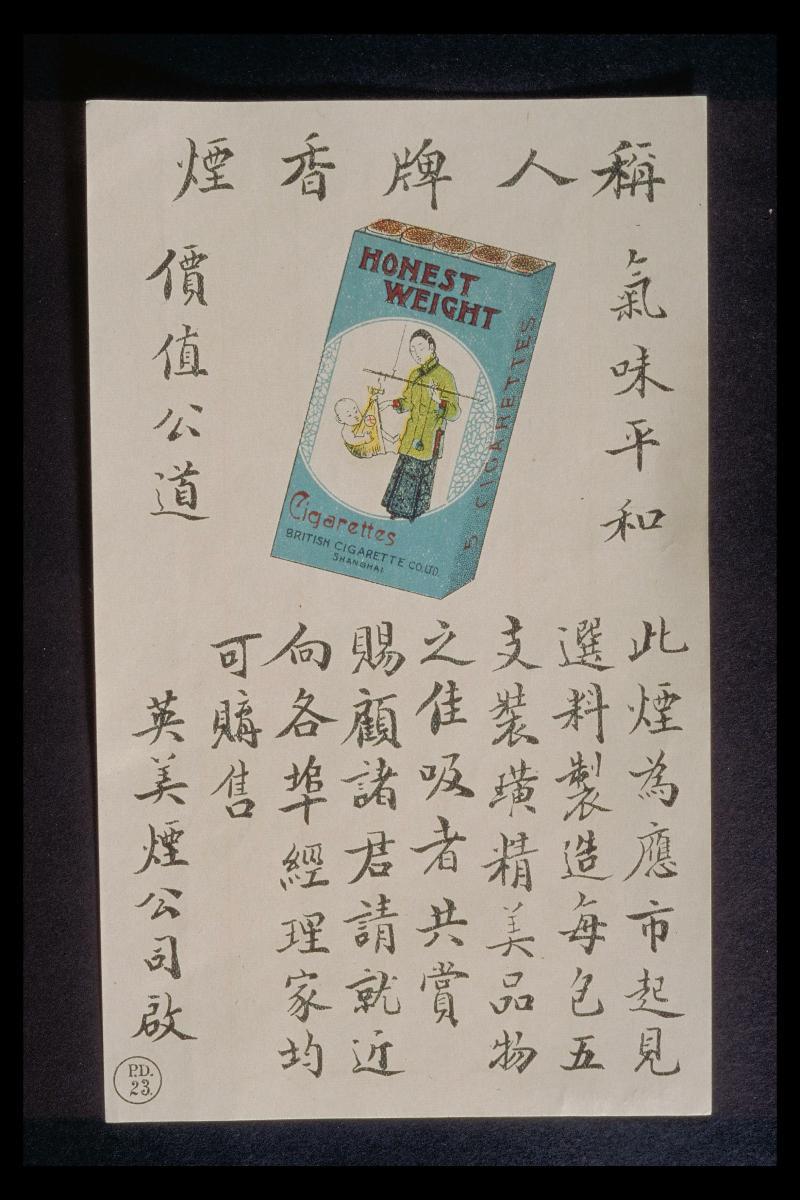 稱人牌香煙
氣味平和
價值公道
HONEST
WEIGHT
5 CIGARETTES
Cigarettes
BRITISH CIGARETTE CO. LTD.
SHANGHAI
此煙為應市起見
選料製造每包五
支裝璜精美品物
之佳吸者共賞
賜顧諸君請就近
向各埠經理家均
可購售
英美煙公司啟
P.D.
23.